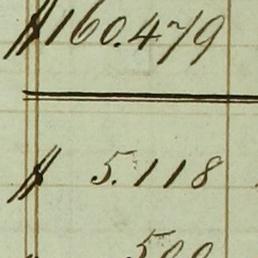 $160.479
$ 5.118